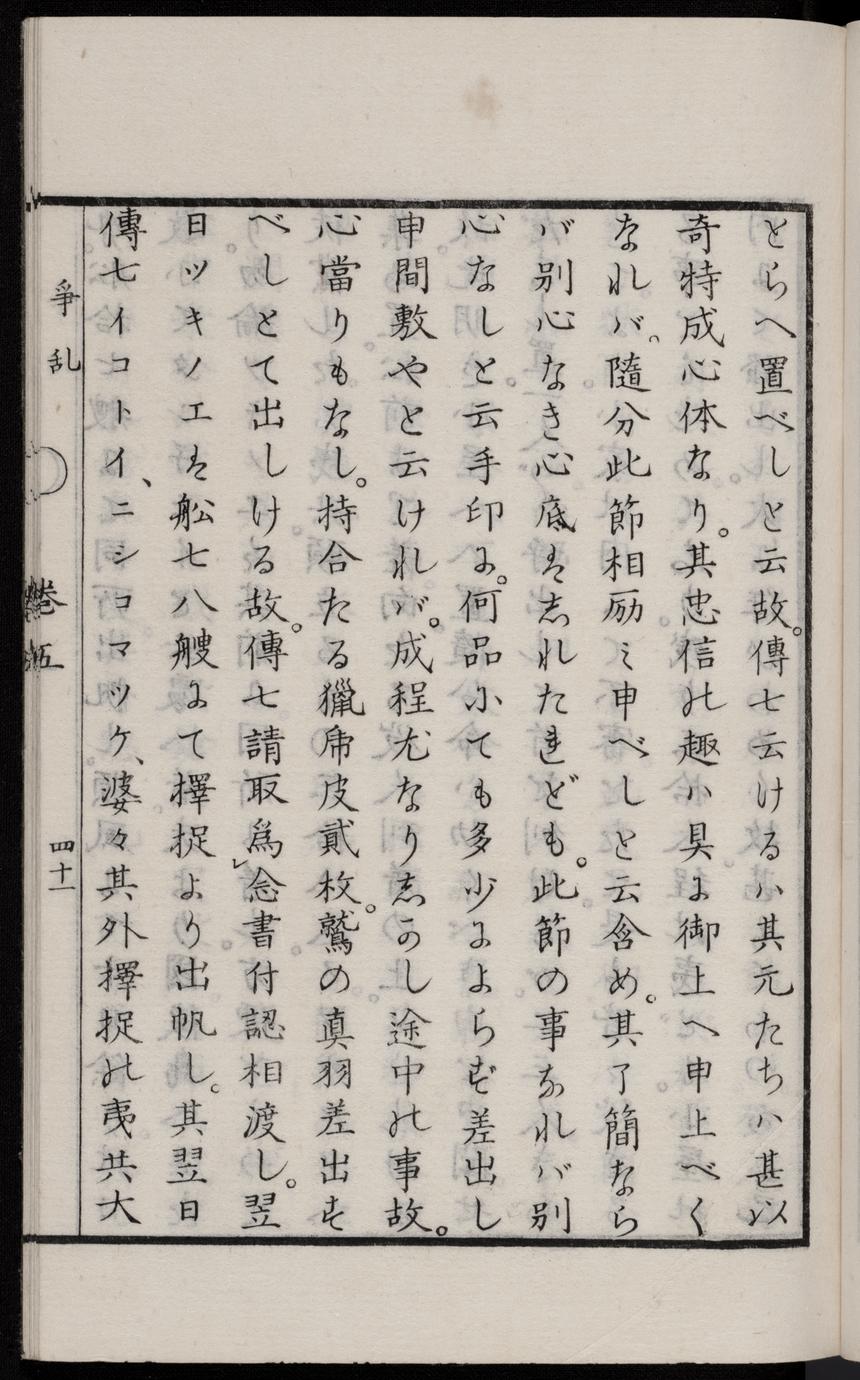 とらへ置べしと云故。傳七云けるハ其元たちハ甚以
奇特成心体なり。其忠信の趣ハ具に御上へ申上べく
なれバ。隨分此節相励ミ申べしと云含め。其了簡なら
バ別心なき心底はしれたれども。此節の事なれバ別
心なしと云手印に。何品にても多少によらず差出し
申間敷やと云けれバ。成程尤なりしかし途中の事故。
心當りもなし。持合たる獵虎皮貳枚。鷲の真羽差出す
べしとて出しける故。傳七請取爲念書付認相渡し。翌
日ツキノエは舩七八艘にて擇捉より出帆し。其翌日
傳七イコトイ、ニシコマツケ、婆々其外擇捉の夷共大
爭乱
巻五
四十一